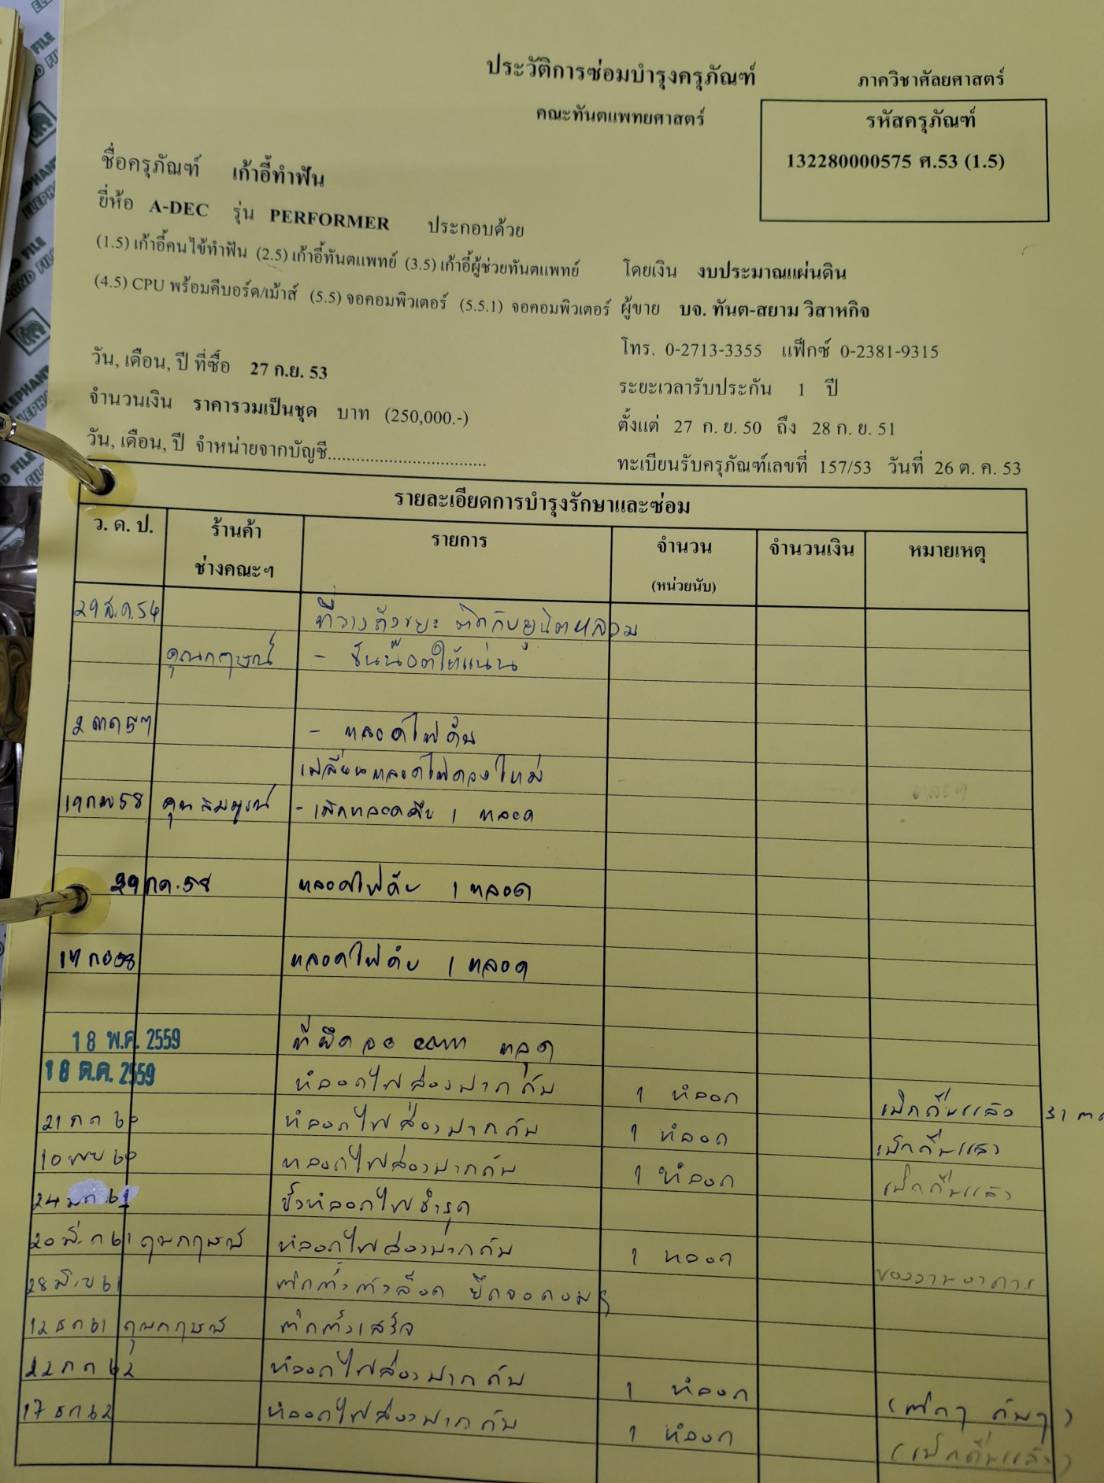 ประวัติการซ่อมบำรุงครุภัณฑ์
คณะทันตแพทยศาสตร์
ภาควิชาศัลยศาสตร์
รหัสครุภัณฑ์
132280000575 ศ.53 (1.5)
ชื่อครุภัณฑ์ เก้าอี้ทำฟัน
ยี่ห้อ A-DEC รุ่น PERFORMER ประกอบด้วย
(1.5) เก้าอี้คนไข้ทำฟัน (2.5) เก้าอี้ทันตแพทย์ (3.5) เก้าอี้ผู้ช่วยทันตแพทย์
(4.5) CPU พร้อมคีบอร์ด/เม้าส์ (5.5) จอคอมพิวเตอร์ (5.5.1) จอคอมพิวเตอร์
โดยเงิน งบประมาณแผ่นดิน
ผู้ขาย บจ. ทันต-สยาม วิสาหกิจ
โทร. 0-2713-3355 แฟ็กซ์ 0-2381-9315
วัน, เดือน, ปี ที่ซื้อ 27 ก.ย. 53
ระยะเวลารับประกัน 1 ปี
จำนวนเงิน ราคารวมเป็นชุด บาท (250,000.-)
ตั้งแต่ 27 ก. ย. 50 ถึง 28 ก. ย. 51
วัน, เดือน, ปี จำหน่ายจากบัญชี..............................
ทะเบียนรับครุภัณฑ์เลขที่ 157/53 วันที่ 26 ต. ค. 53
รายละเอียดการบำรุงรักษาและซ่อม
ว. ด. ป. ร้านค้า ช่างคณะฯ รายการ จำนวน (หน่วยนับ) จำนวนเงิน หมายเหตุ
29 ส.ค. 54 ที่วางถังขยะ ติดกับยูนิตหลวม
คุณกฤษณ์ - ขันน๊อตให้แน่น
- หลอดไฟดับ
เปลี่ยนหลอดไฟดวงใหม่
- เบิกหลอดดับ 1 หลอด
29 กค. 58 หลอดไฟดับ 1 หลอด
หลอดไฟดับ 1 หลอด
18 พ.ค. 2559 ที่ยึดจอ com หลุด
18 ต.ค. 2559 หลอดไฟส่องปากดับ 1 หลอด เบิกคืนแล้ว
21 กค 60 หลอดไฟส่องปากดับ 1 หลอด เบิกคืนแล้ว
10 พย 60 หลอดไฟส่องปากดับ 1 หลอด เบิกคืนแล้ว
ขั้วหลอดไฟชำรุด
20 มี.ค 61 คุณกฤษณ์ หลอดไฟส่องปากดับ 1 หลอด
ของงานอาคาร
12 ธค 61 คุณกฤษณ์ ติดตั้งเสร็จ
22 กค 62 หลอดไฟส่องปากดับ 1 หลอด (ติดๆ ดับๆ)
17 ธค 62 หลอดไฟส่องปากดับ 1 หลอด (เบิกคืนแล้ว)
ELEPHANT